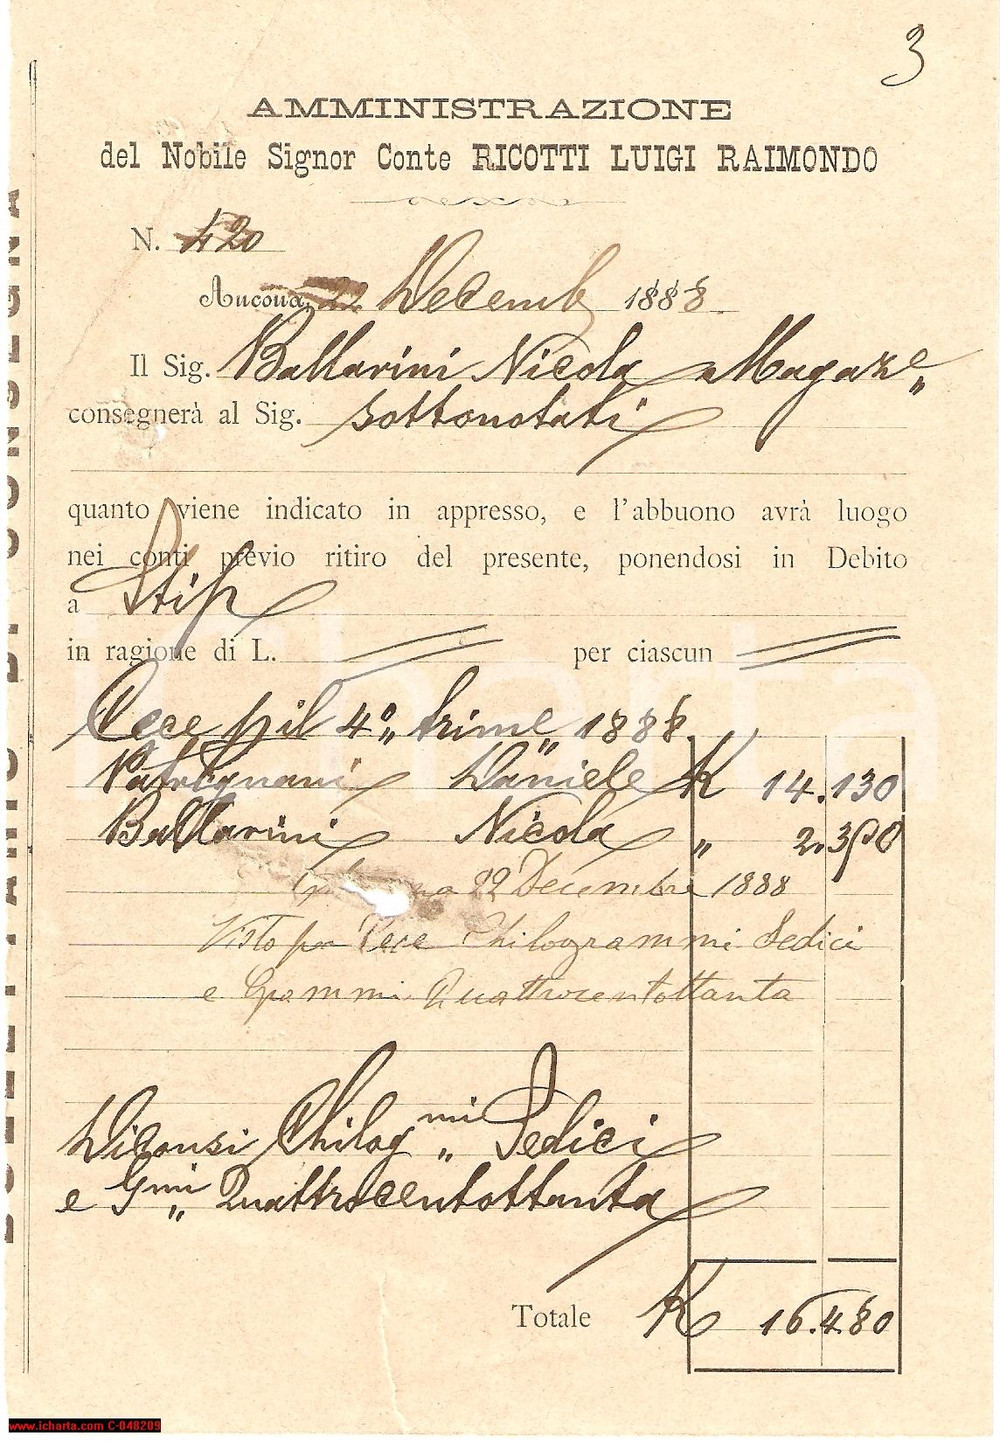 3
AMMINISTRAZIONE
del Nobile Signor Conte RICOTTI LUIGI RAIMONDO
N. 420
Ancona, 22 Decemb 1888
Il Sig. Ballarini Nicola Magaze„
consegnerà al Sig. sottonotati
quanto viene indicato in appresso, e l'abbuono avrà luogo
nei conti previo ritiro del presente, ponendosi in Debito
a Stip
in ragione di L. per ciascun
Cece pil 4º„ trime„ 1888
Patrignani Daniele K 14.130
Ballarini Nicola „ 2.350
22 Decembre 1888
Visto per Cece Chilogrammi Sedici
e Grammi Quattrocentottanta
Diconsi Chilogmi„ Sedici
e Gmi„ Quattrocentottanta
Totale K 16.480
www.icharta.com C-048209